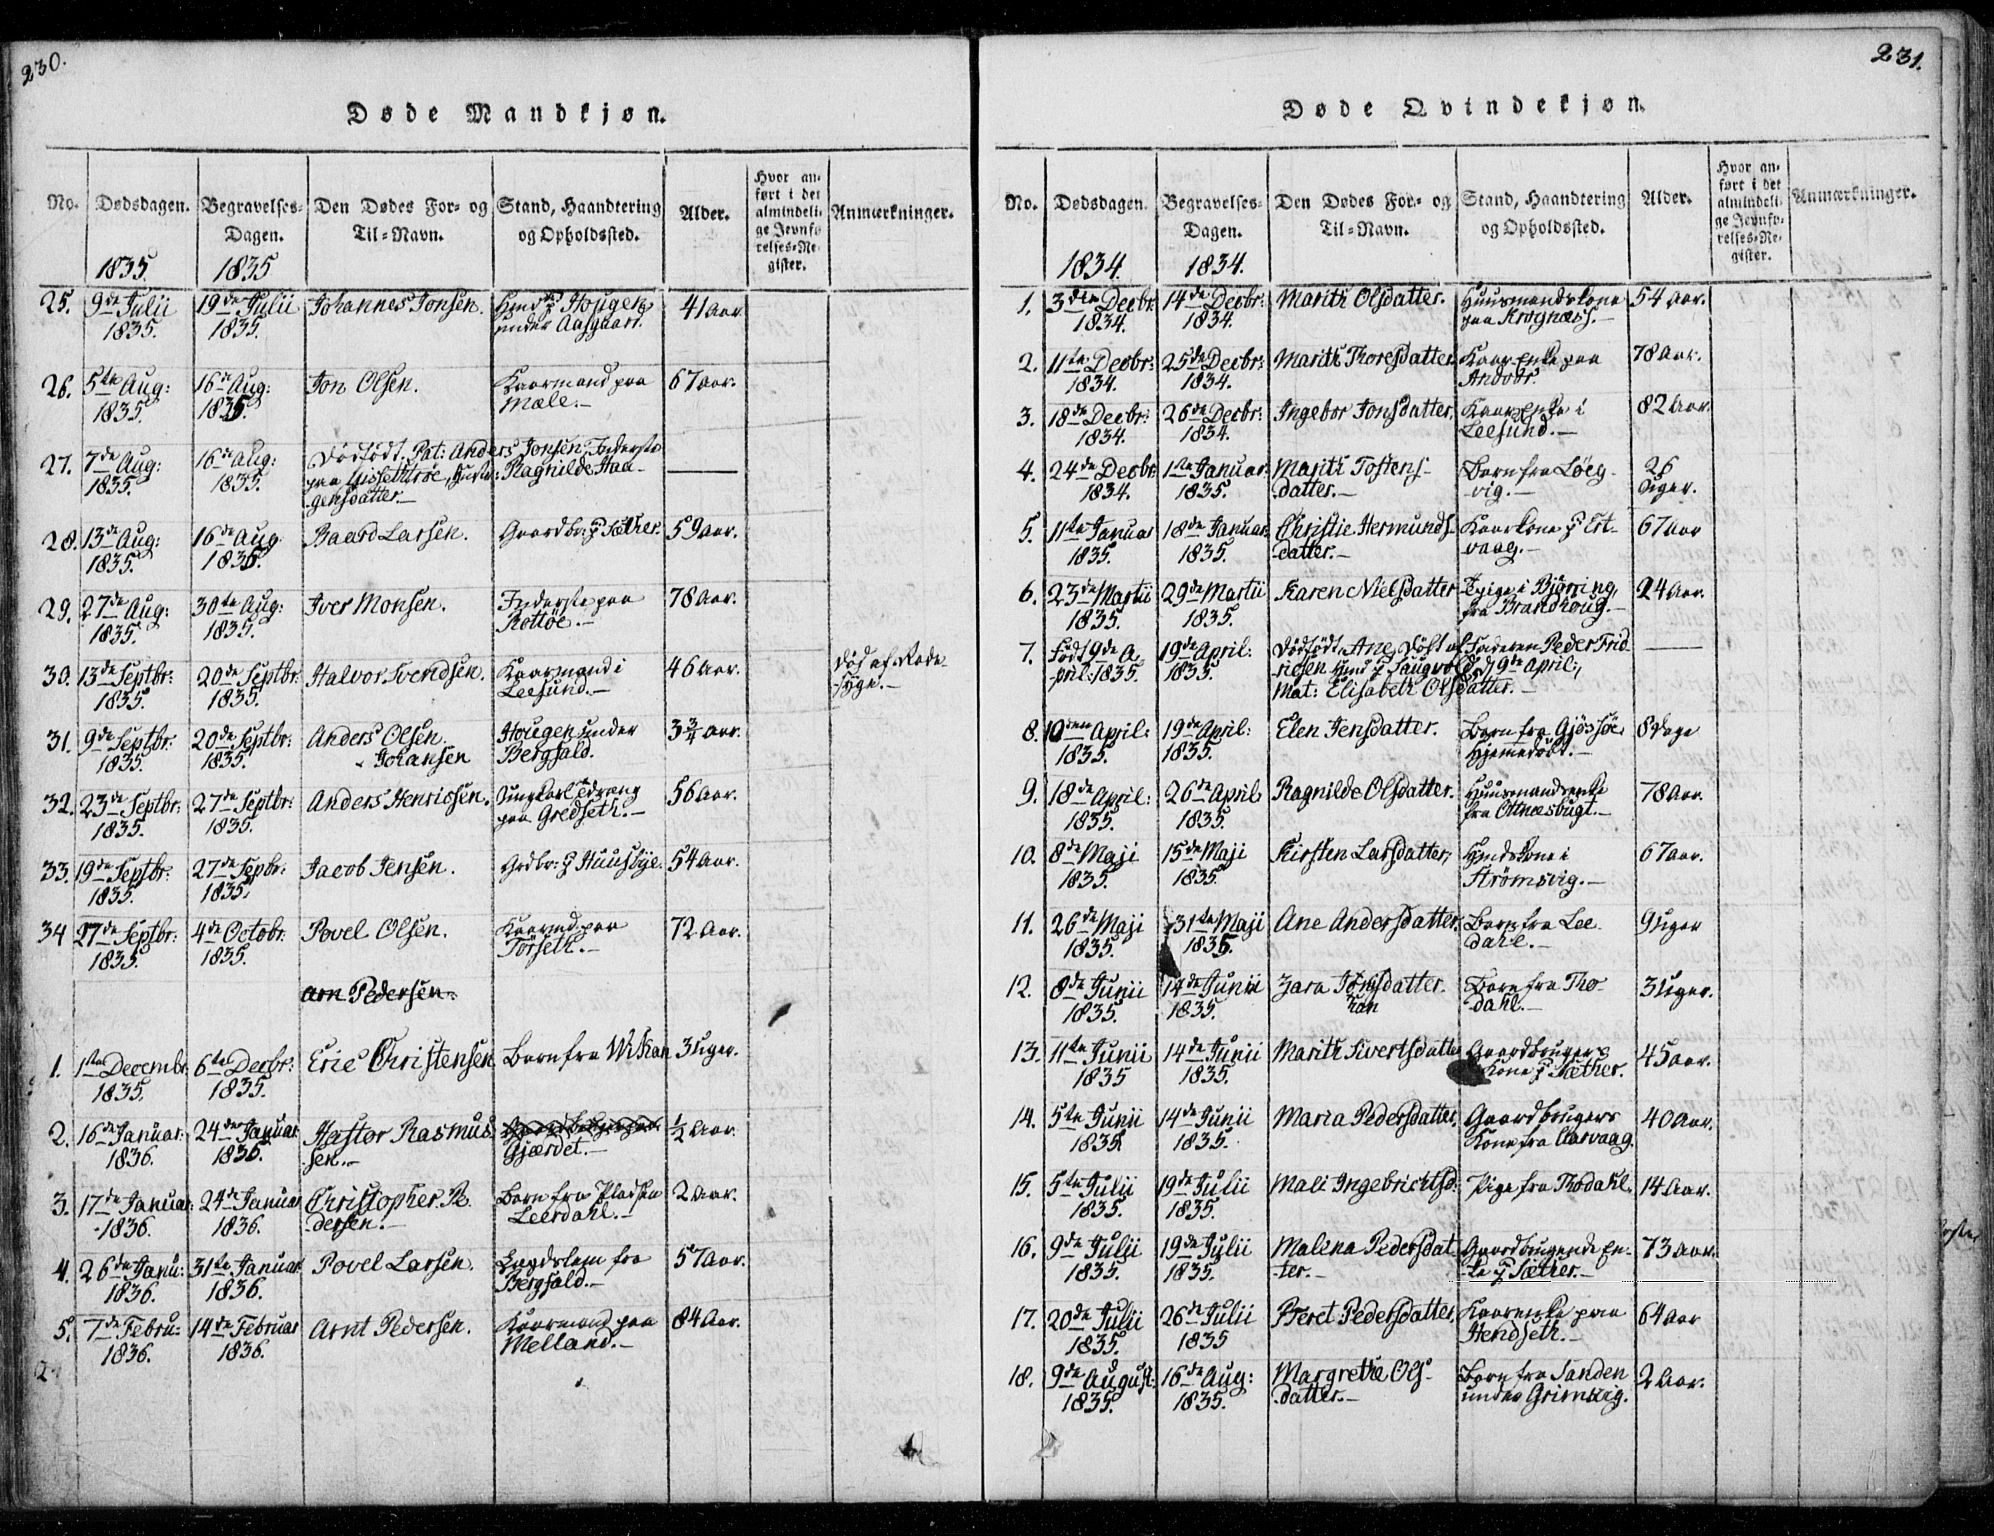 230.
Døde Mandkjøn.
No. Dødsdagen. Begravelses-Dagen. Den Dødes For- og Til-Navn. Stand, Haandtering og Opholdssted. Alder. Hvor anført i det almindelige Jevnførelses-Register. Anmærkninger.
1835. 1835
25. 9de Julii 19de Julii Johannes Jonsen. Hmd p Hougen 41 Aar
1835. 1835. under Aasgaart.
26. 5te Aug: 16de Aug: Jon Olsen. Kaarmand paa 67 Aar.
1835 1835. Mæle.
27. 7de Aug: 16de Aug: Dødfødt. Pat: Anders Jonsen Inderste
1835. 1835. paa Hustr: Ragnilde Haa-
gensdatter.
28. 13de Aug: 16de Aug Baard Larsen. Gaardbr: p Sæther. 59 Aar.
1835. 1835.
29. 27de Aug: 30te Aug: Iver Monsen. Inderste paa 78 Aar.
1835. 1835. Rottøe.
30. 13de Septbr: 20de Septbr: Halvor Svendsen. Kaarmand i 46 Aar. Død af Rade-
1835. 1835. Leesund. syge.
31. 9de Septbr: 20de Septbr: Anders Olsen. Hougen under 3 3/4 Aar.
1835. 1835. Johansen Bergfald.
32. 23de Septbr: 27de Septbr: Anders Henricsen. Ungkarl 56 Aar.
1835. 1835. paa Gredseth.
33. 19de Septbr: 27de Sepbr: Jacob Jensen. Grdbr: p Huusbye. 54 Aar.
1835. 1835.
34 27de Septbr: 4de Octobr: Povel Olsen. Kaarmd paa 72 Aar.
1835. 1835. Törseth.
Arn Pedersen.
1. 1ste Decembr. 6te Decbr: Eric Christensen Barn fra Wikan 3 Uger.
1835. 1835.
2. 16de Januar: 24de Januar Hastor Rasmus- 1/2 Aar.
1836. 1836. sen. Gjærdet.
3. 17de Januar: 24de Januar Christopher Pe- Barn fra Pladsen 2 Aar.
1836. 1836. dersen. Leerdahl.
4. 26de Janu: 31te Januar Povel Larsen. Lægdslem fra 57 Aar.
1836. 1836. Bergfald.
5. 7de Febru: 14de Februar Arnt Pedersen. Kaarmand paa 84 Aar.
1836. 1836. Melland.
231.
Døde Qvindekjøn.
No. Dødsdagen. Begravelses-Dagen. Den Dødes For- og Til-Navn. Stand, Haandtering og Opholdssted. Alder. Hvor anført i det almindelige Jevnførelses-Register. Anmærkninger.
1834. 1834.
1. 3die Decbr: 14de Decbr: Marith Olsdatter. Huusmandskone 54 Aar.
1834. 1834. paa Krognæss.
2. 11te Decbr: 25de Decbr: Marith Thoresdatter Kaarenke paa 78 Aar.
1834. 1834.
3. 18de Decbr: 26de Decbr: Ingebor Jonsdatter. Kaarenke i 82 Aar.
1834. 1834. Leesund.
4. 24de Decbr: 1ste Januar: Marith Tostens- Barn fra Løeg- 26
1834. 1835. datter. vig. Uger.
5. 11te Januar 18de Januar: Christie Hermunds- Kaarkone p Ert- 67 Aar
1835. 1835. datter. vaag.
6. 23de Martii 29de Martii Karen Nielsdatter Pige i Bjøring, 24 Aar.
1835. 1835. fra Brandhoug.
7. Født 9de A- 19de April: Dødfødt, Ane, Døbt af Faderen Peder Frid-
pril: 1835. 1835. ricsen Hmd p Saugvold d: 9de April:,
Mat: Elisabeth Olsdatter.
8. 10nen April: 19de April: Elen Jensdatter. Barn fra Gjøssøe, 8 Dage
1835. 1835. Hjemmedøbt.
9. 18de April: 26de April Ragnilde Olsdatter. Huusmandsenke 78 Aar.
1835. 1835. fra Ottnæsbugt.
10. 8de Maji 15de Maji Kirsten Larsdatter, Hmdskone i 67 Aar.
1835. 1835. Strømsvig.
11. 26de Maji 31te Maji Ane Andersdatter. Barn fra Lee- 9 Uger
1835. 1835. dahl.
12. 8de Junii 14de Junii Zara Jonsdatter. Barn fra Tho- 3 Uger.
1835. 1835. han dahl.
13. 11te Junii 14de Junii Marith Sivertsdatter Gaardbrugers 45 Aar.
1835 1835. Kone p Sæther.
14. 5te Junii 14de Junii Maria Pedersdatter. Gaardbrugers 40 Aar.
1835 1835. Kone fra Aarvaag.
15. 5te Julii 19de Julii Mali Ingebrichtsd: Pige fra Thodahl. 14 Aar.
1835. 1835.
16. 9de Julii 19de Julii Malena Pedersdat- Gaardbrugende En- 73 Aar.
1835. 1835. ter. ke p Sæther.
17. 20de Julii 26de Julii Beret Pedersdatter. Kaarenke paa 64 Aar
1835. 1835 Hendseth.
18. 9de August: 16de Aug: Margrethe Ols- Barn fra Sanden 2 Aar.
1835. 1835. datter. under Grimsvig.